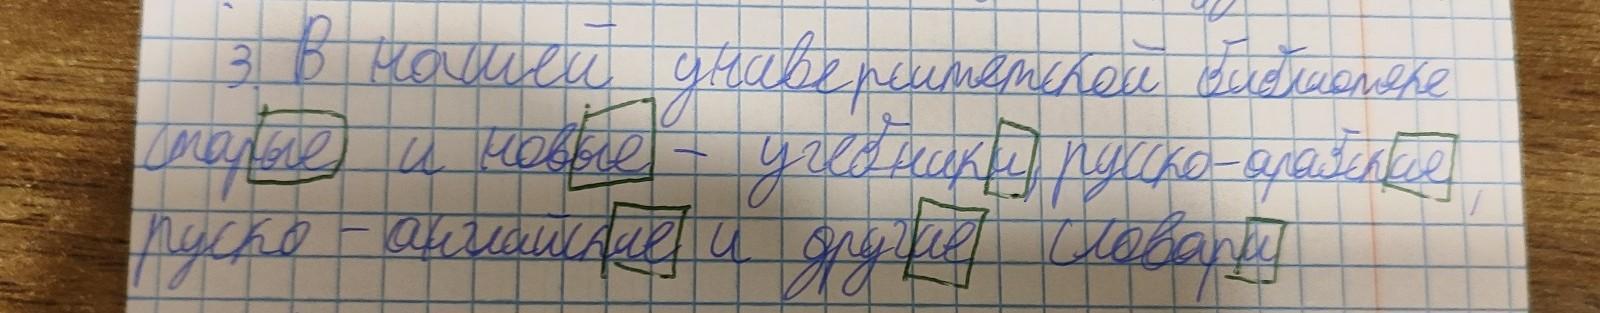 3. В нашей университетской библиотеке
старые и новые - учебники, русско-арабские,
руско-английские и другие словари